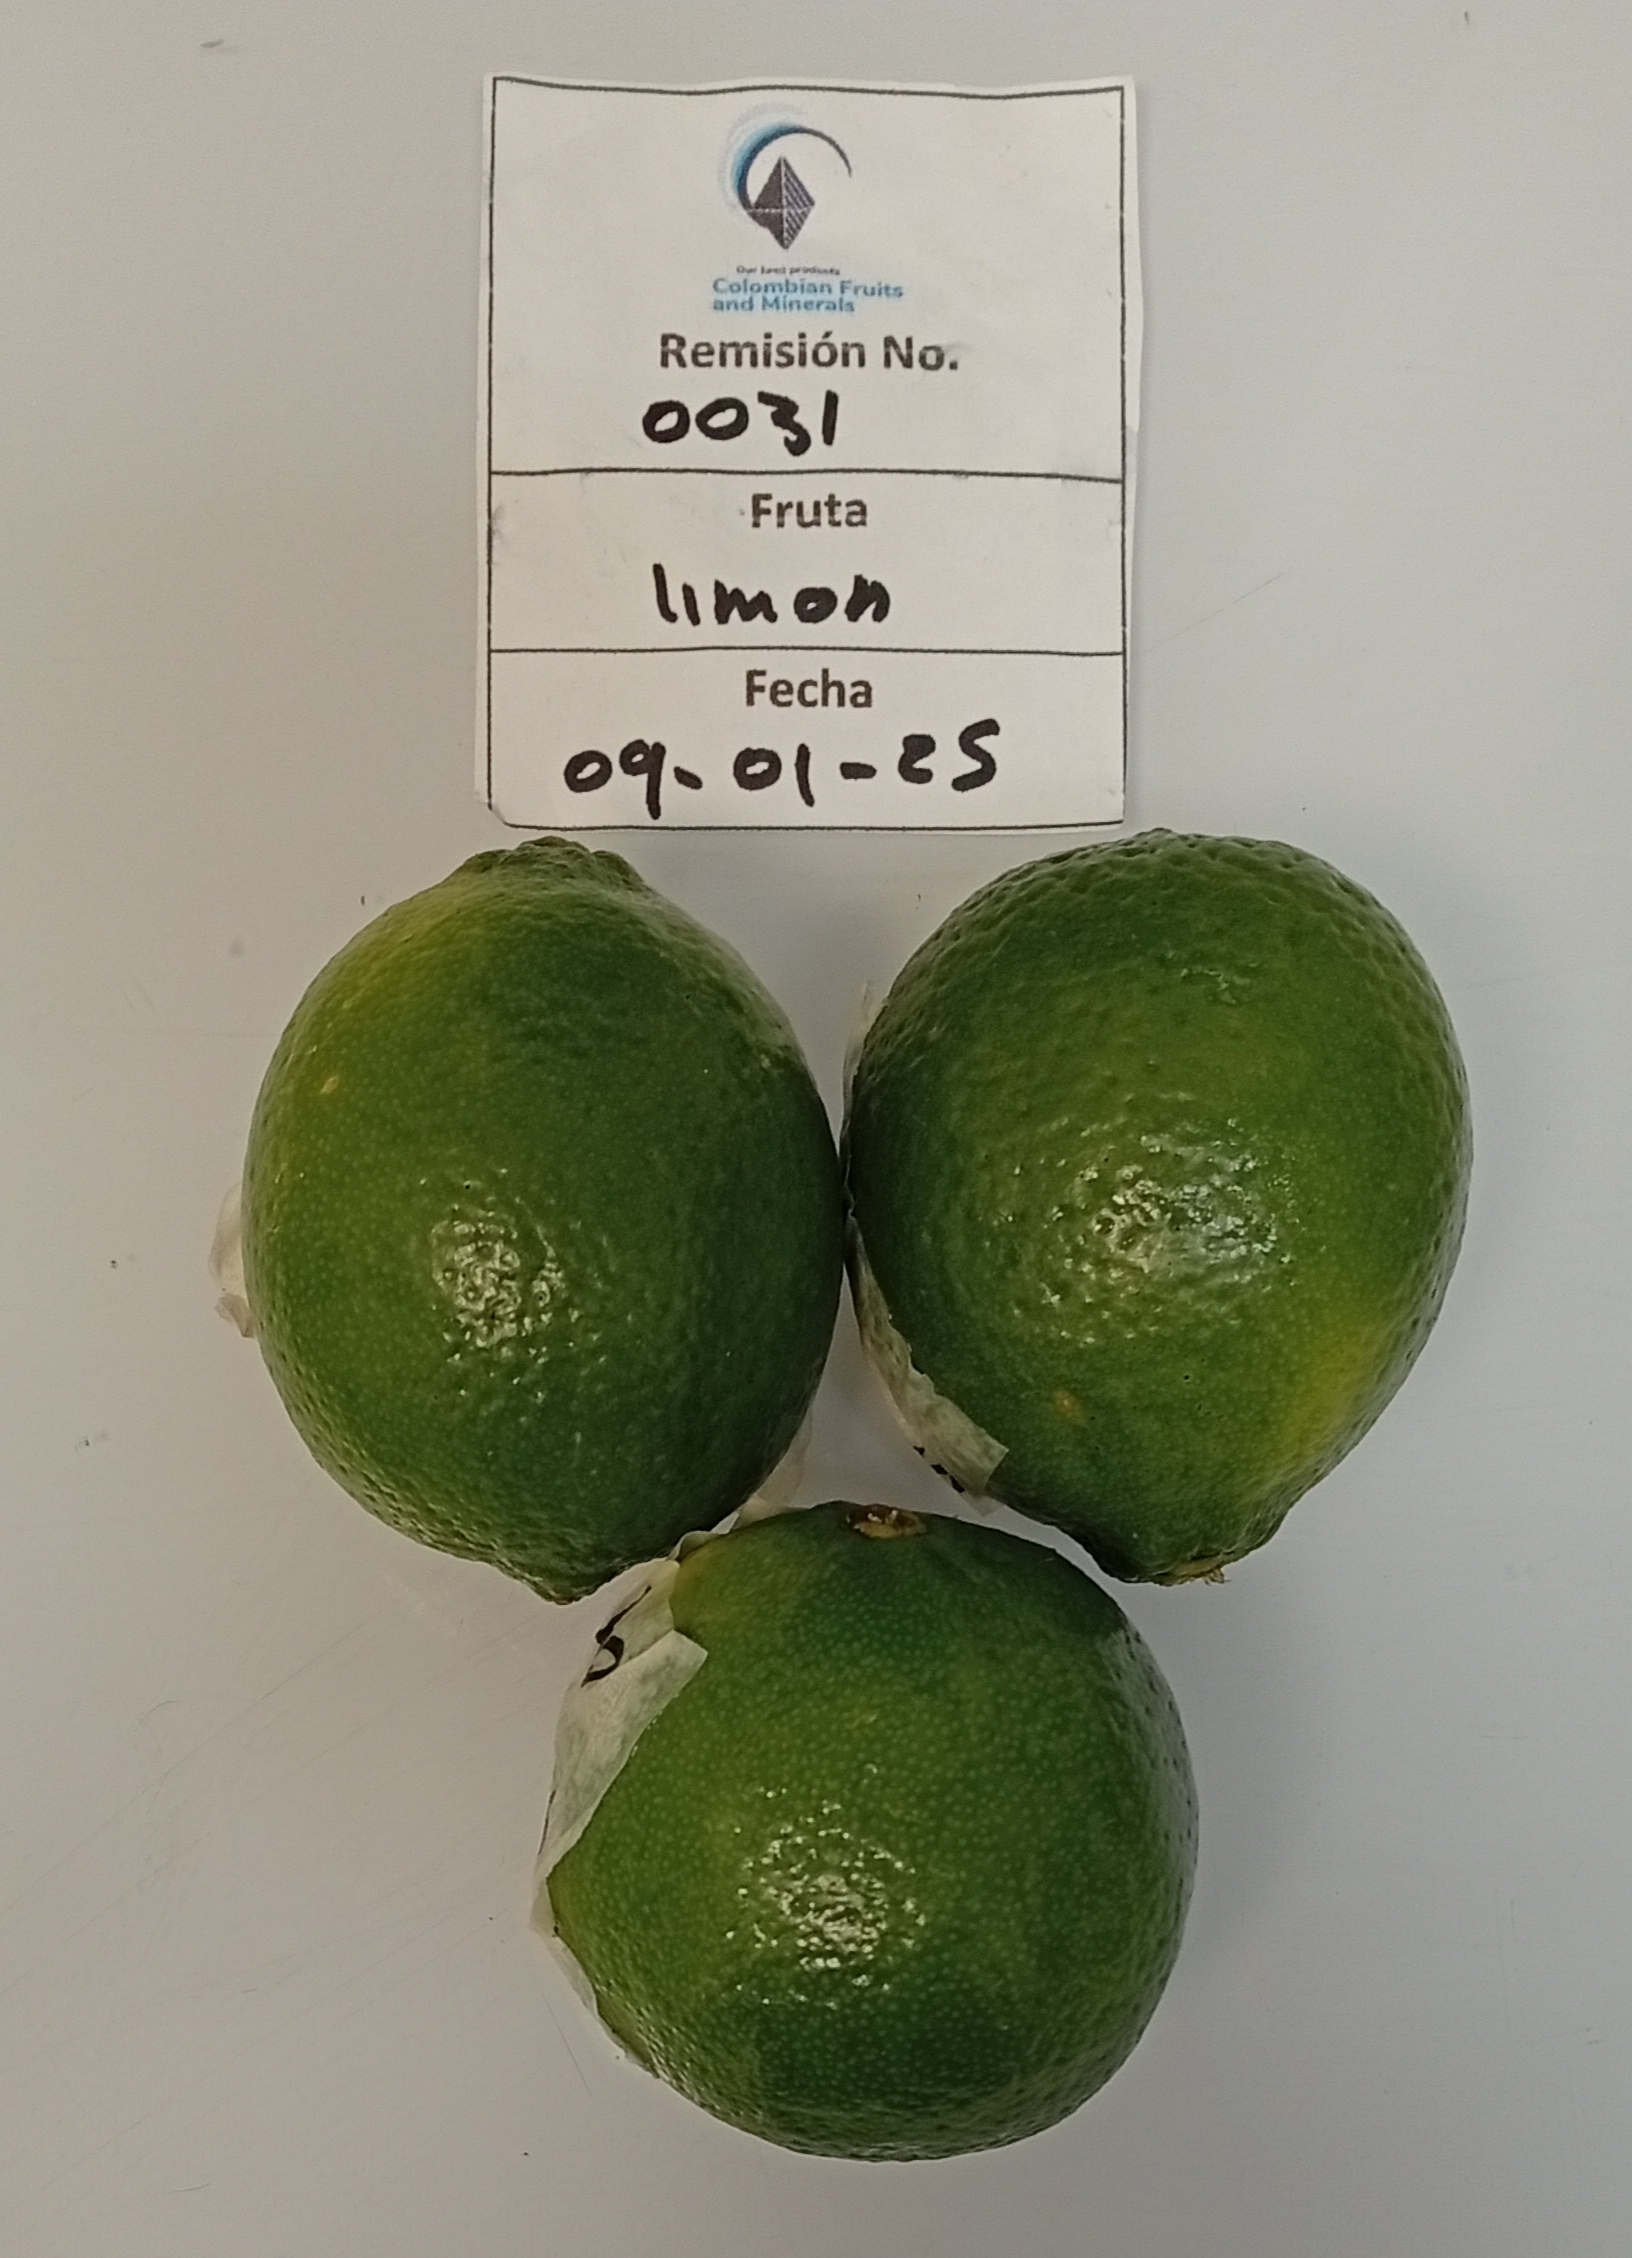 Our best products
Colombian Fruits
and Minerals
Remisión No.
0031
Fruta
limon
Fecha
09-01-25